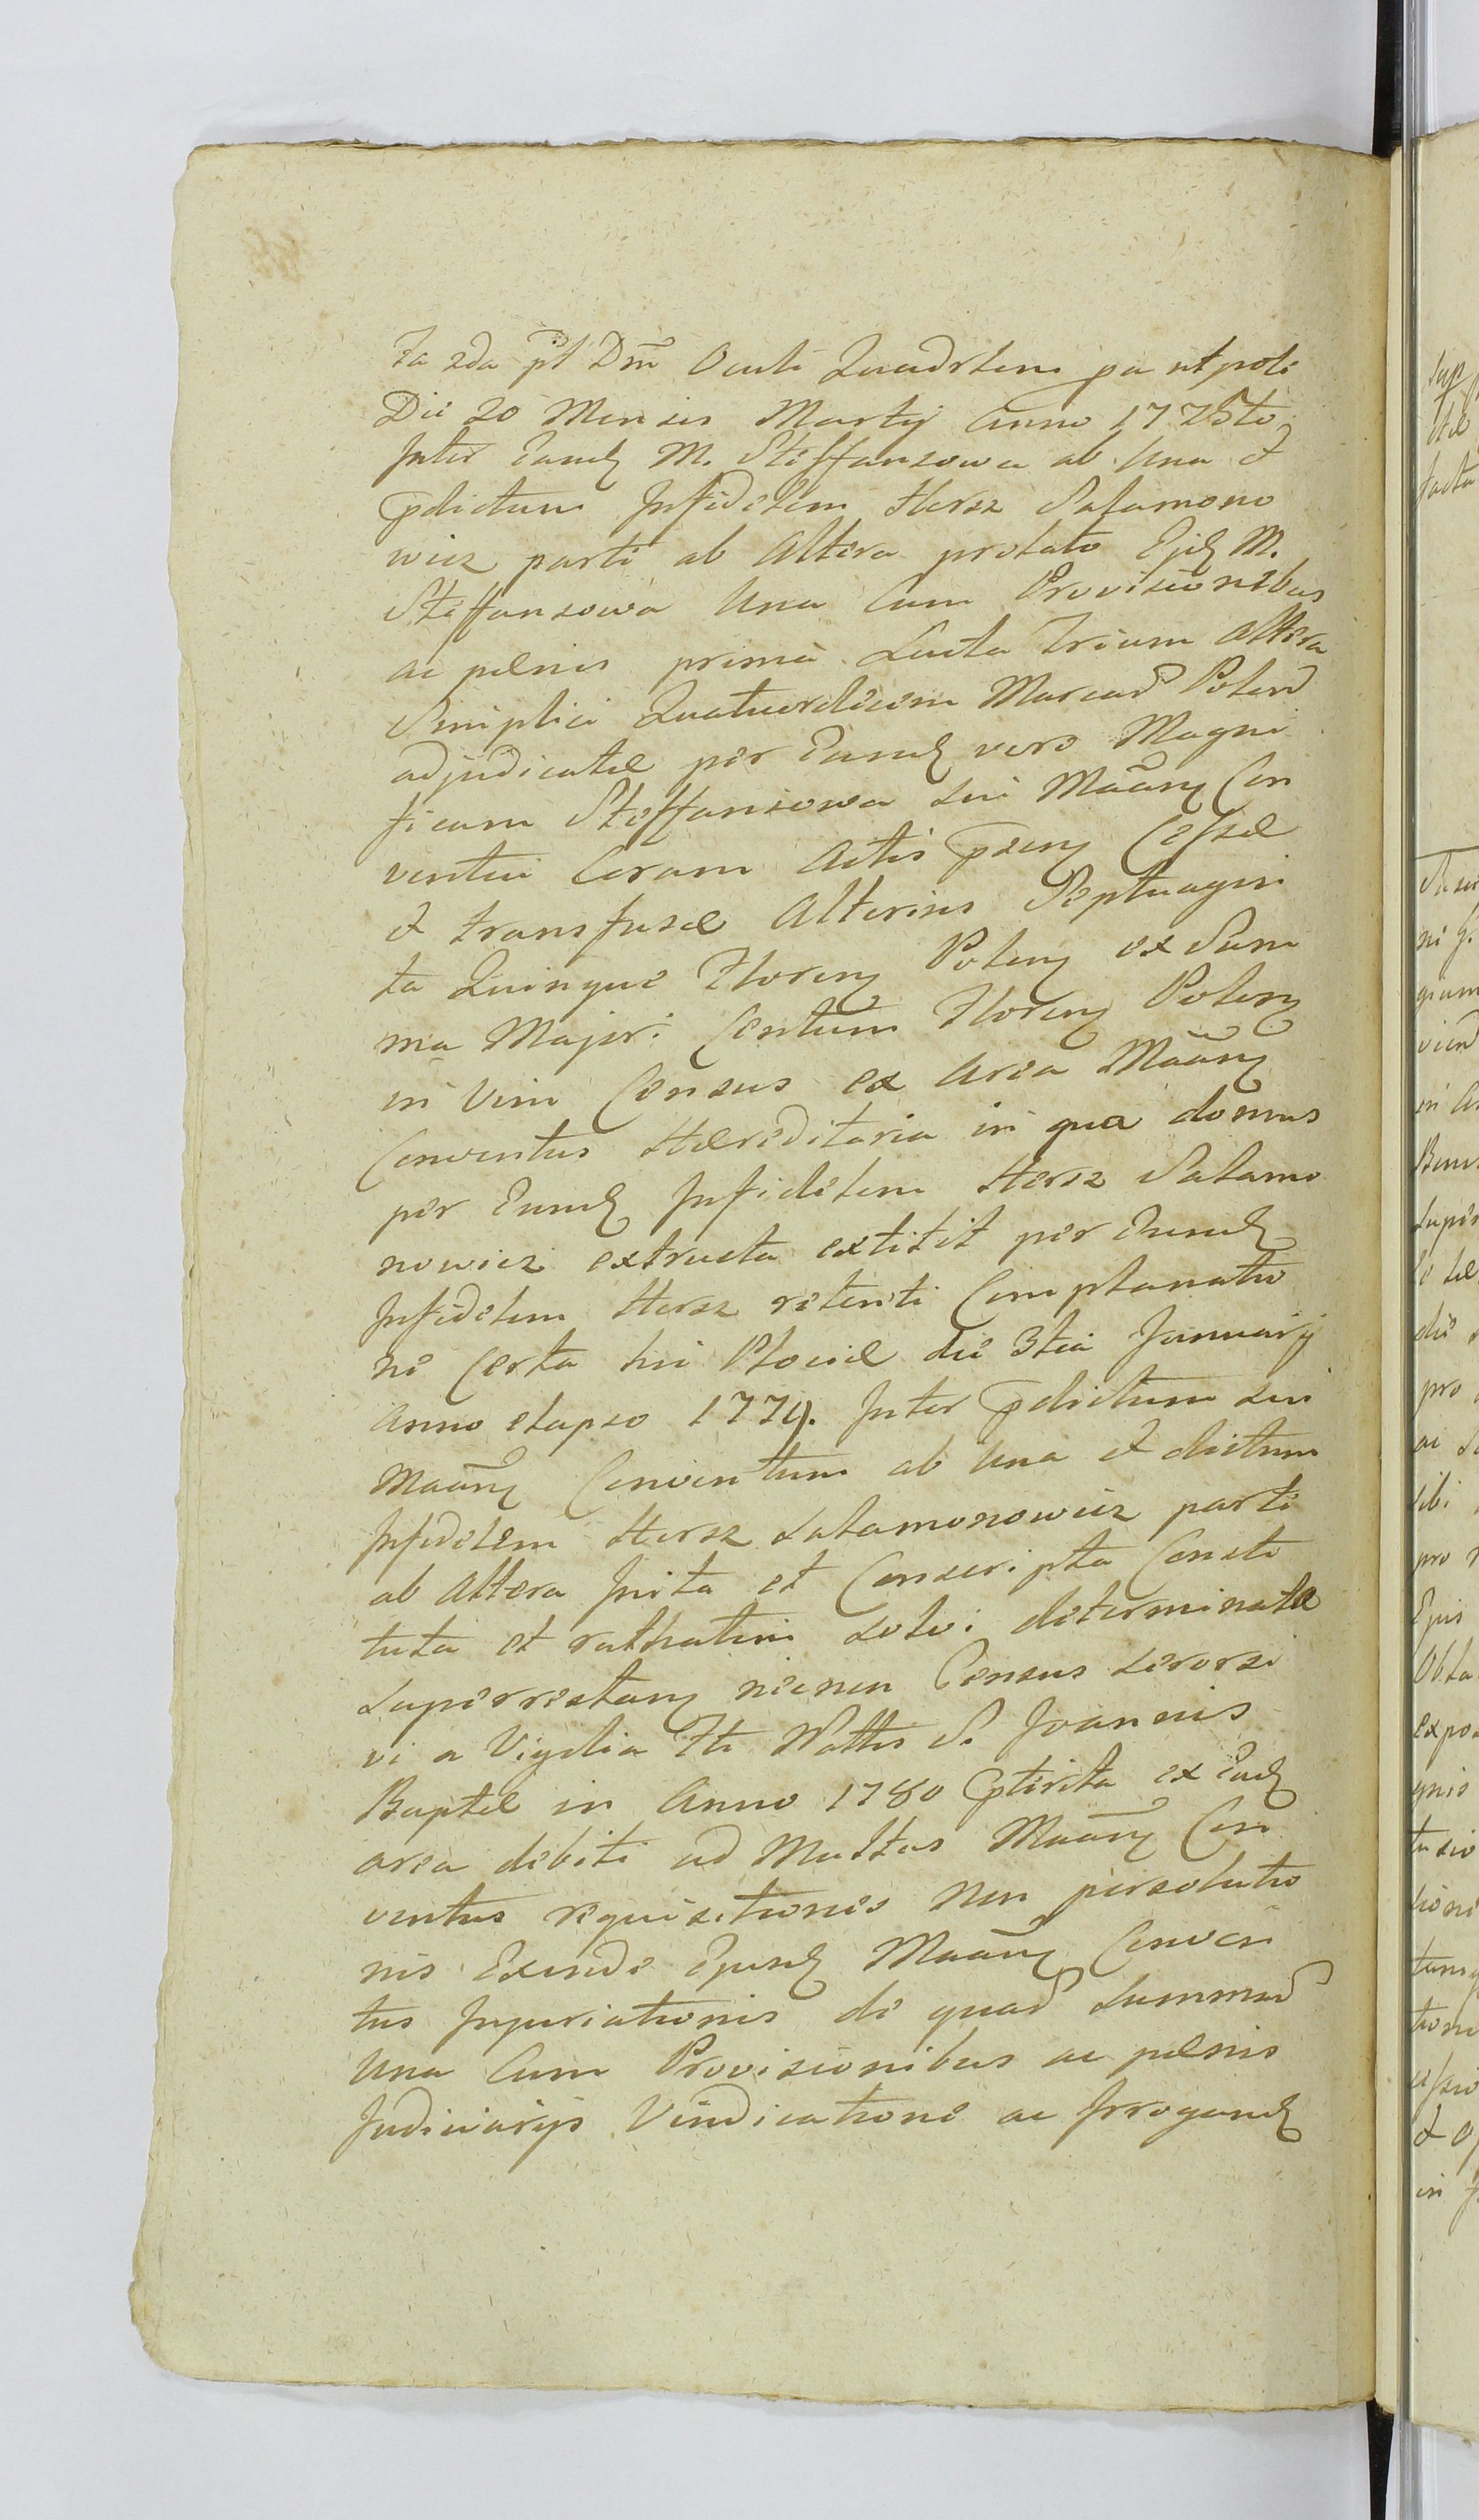 ria 2da pt Dm̄ Oculi Quadrlem pa utpote
Die 20 Mensis Martij Anno 1775to
Inter Eand M. Steffansowa ab Una et
pdictum Infidelem Hersz Salamono
wicz parte ab Altera prolato Ejd M.
Steffansowa Una Cum Provisionibus
ac pœnis prima Lucta Trium Altera
Simplici Quatuordecim Marcar Polon
adjudicatæ per Eand vero Magni
ficam Steffansowa sui Maāny Con
ventui Coram Actis pseny Cessæ
et transfusæ Alterius Septuagin
ta Quinque Floreny Poleny ex Sum
ma Majori Centum Floreny Poleny
in Vim Census ex Area Maāny
Conventus Hæreditaria in qua domus
per Eund Infidelem Hersz Salamo
nowicz extructa extitit per Eund
Infidelem Hersz retenti Complanatio
ne Certa hic Plociæ die 3tia January
Anno elapso 1779. Inter pdictum sui
Maāny Conventum ab Una et dictum
Infidelem Hersz Salamonowicz parte
ab Altera Inita et Conscripta Consti
tuta et rathatim solvi determinatæ
Superrestany necnon Census
vi a Vigilia Fti Nattis S. Joannis
Baptæ in Anno 1780 pterita ex Ead
area debiti ad Multas Maāny Con
ventus requisitiones Non persolutio
nis Exinde Ejusd Maāny Conven
tus Injuriationis de quar Summar
Una Cum Provisionibus ac pœnis
Judiciarijs Vindicatione ac Irrogand